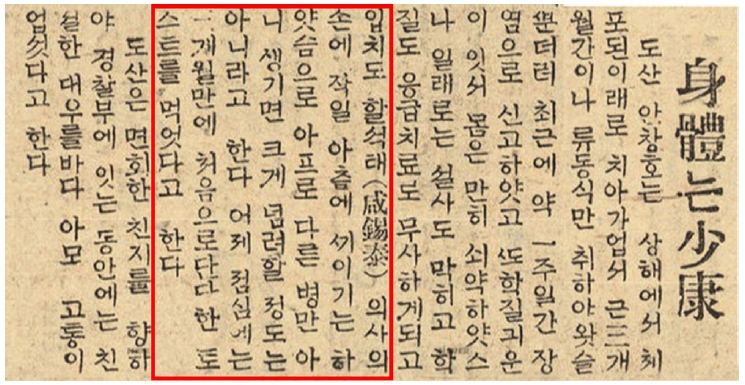 身體는少康
도산 안창호는 상해에서 체
포된이래로 치아가업서 근三개
월간이나 류동식만 취하야왓슬
뿐더러 최근에 약 一주일간 장
염으로 신고하얏고 ᄯᅩ학질긔운
이 잇서 몸은 만히 쇠약하얏스
나 일래로는 설사도 막히고 학
질도 응급치료로 무사하게되고
입치도 함석태(咸錫泰) 의사의
손에 작일 아츰에 ᄭᅵ이기는 하
얏슴으로 아프로 다른 병만 아
니 생기면 크게 념려할 정도는
아니라고 한다 어제 점심에는
개월만에 처음으로단단한 토
스트를 먹엇다고 한다
도산은 면회한 친지를 향하
야 경찰부에 잇는 동안에는 친
절한 대우를바다 아모 고통이
업섯다고 한다